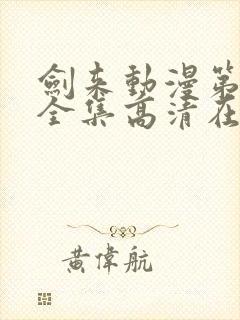 劍来動漫第
全集高清在
黄偉航